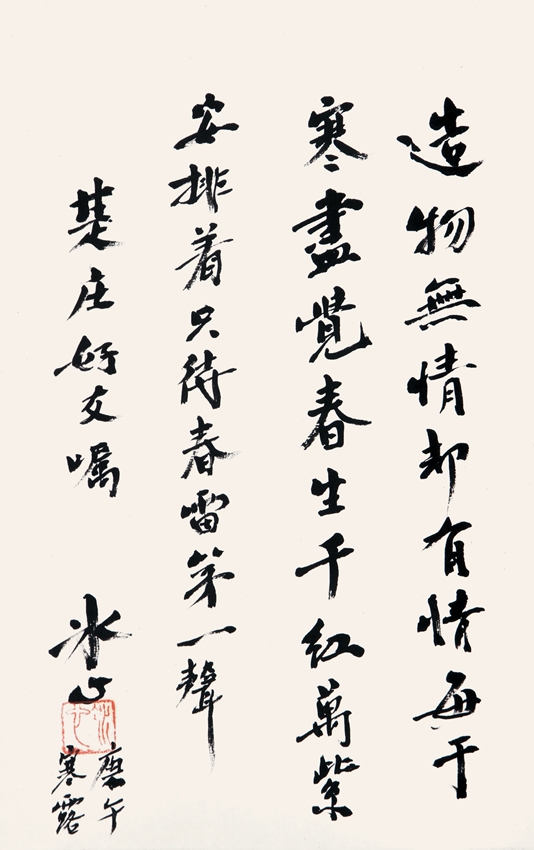 造物無情却有情每于
寒盡覺春生千紅萬紫
安排着只待春雷第一聲
楚庄好友嘱
冰心
庚午
寒露